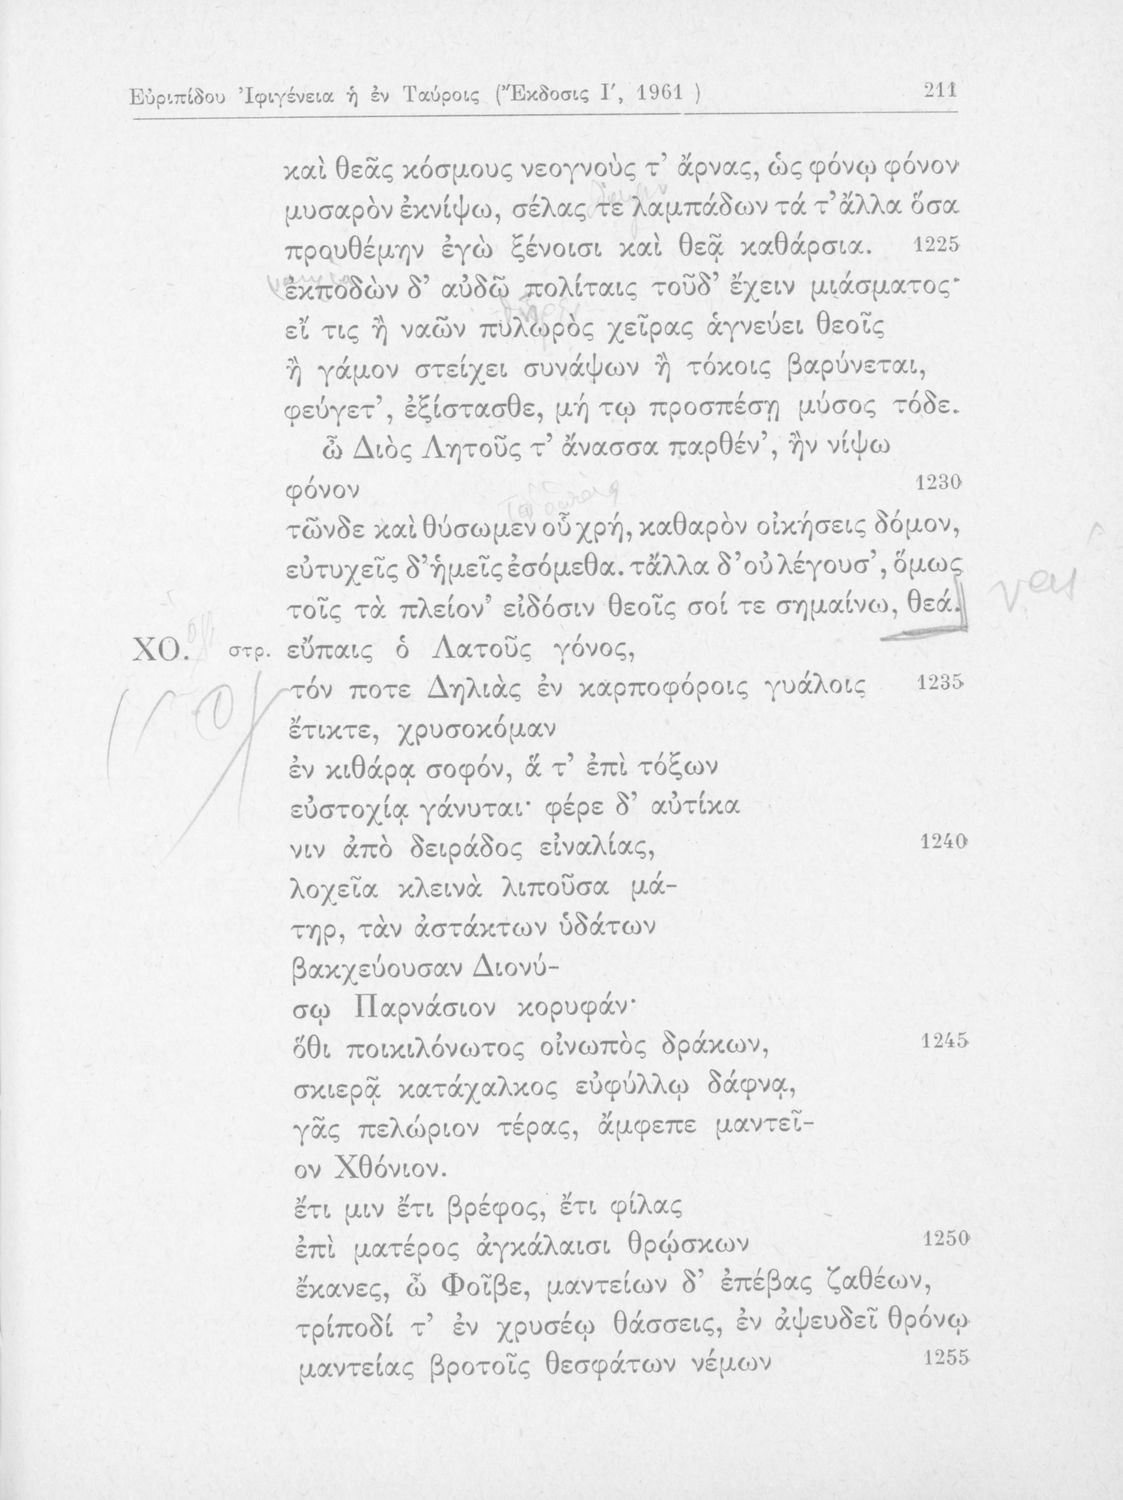 Εὐριπίδου Ἰφιγένεια ἡ ἐν Ταύροις (Ἔκδοσις Ι′, 1961 ) 211
καὶ θεᾶς κόσμους νεογνοὺς τ’ ἄρνας, ὡς φόνῳ φόνον
μυσαρὸν ἐκνίψω, σέλας τε λαμπάδων τά τ’ἄλλα ὅσα
προυθέμην ἐγὼ ξένοισι καὶ θεᾷ καθάρσια. 1225
ἐκποδὼν δ’ αὐδῶ πολίταις τοῦδ’ ἔχειν μιάσματος·
εἴ τις ἢ ναῶν πυλωρὸς χεῖρας ἁγνεύει θεοῖς
ἢ γάμον στείχει συνάψων ἢ τόκοις βαρύνεται,
φεύγετ’, ἐξίστασθε, μή τῳ προσπέσῃ μύσος τόδε.
ὦ Διὸς Λητοῦς τ’ ἄνασσα παρθέν’, ἢν νίψω
φόνον 1230
τῶνδε καὶ θύσωμεν οὗ χρή, καθαρὸν οἰκήσεις δόμον,
εὐτυχεῖς δ’ἡμεῖς ἐσόμεθα. τἄλλα δ’οὐ λέγουσ’, ὅμως
τοῖς τὰ πλείον’ εἰδόσιν θεοῖς σοί τε σημαίνω, θεά. ναι
ΧΟ. στρ. εὔπαις ὁ Λατοῦς γόνος,
τόν ποτε Δηλιὰς ἐν καρποφόροις γυάλοις 1235
ἔτικτε, χρυσοκόμαν
ἐν κιθάρᾳ σοφόν, ἅ τ’ ἐπὶ τόξων
εὐστοχίᾳ γάνυται· φέρε δ’ αὐτίκα
νιν ἀπὸ δειράδος εἰναλίας, 1240
λοχεῖα κλεινὰ λιποῦσα μά-
τηρ, τὰν ἀστάκτων ὑδάτων
βακχεύουσαν Διονύ-
σῳ Παρνάσιον κορυφάν·
ὅθι ποικιλόνωτος οἰνωπὸς δράκων, 1245
σκιερᾷ κατάχαλκος εὐφύλλῳ δάφνᾳ,
γᾶς πελώριον τέρας, ἄμφεπε μαντεῖ-
ον Χθόνιον.
ἔτι μιν ἔτι βρέφος, ἔτι φίλας
ἐπὶ ματέρος ἀγκάλαισι θρῴσκων 1250
ἔκανες, ὦ Φοῖβε, μαντείων δ’ ἐπέβας ζαθέων,
τρίποδί τ’ ἐν χρυσέῳ θάσσεις, ἐν ἀψευδεῖ θρόνῳ
μαντείας βροτοῖς θεσφάτων νέμων 1255